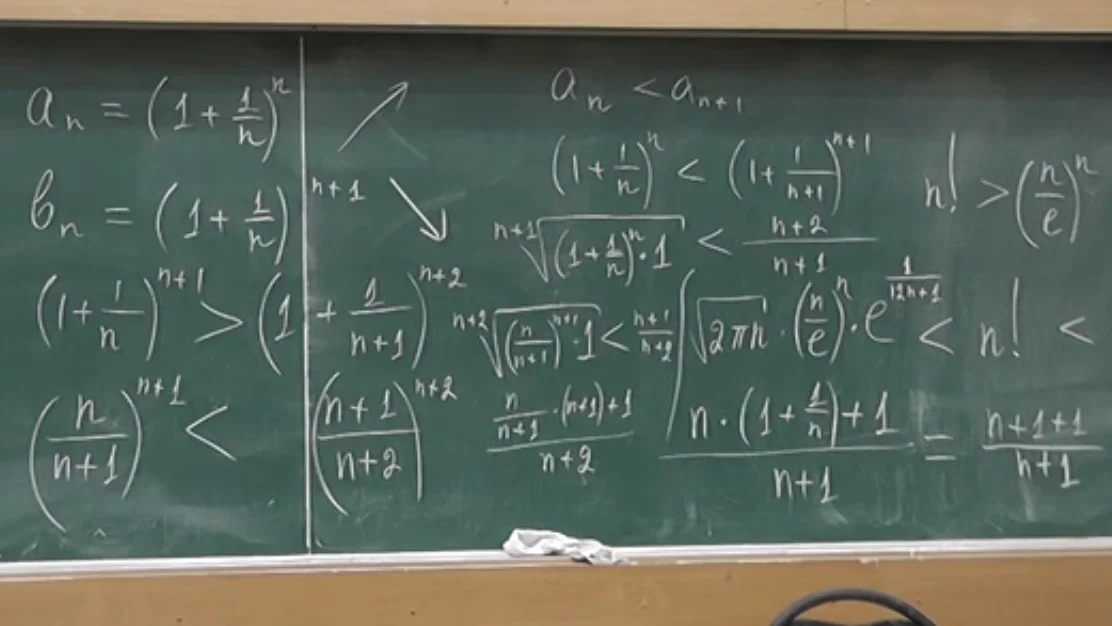 aₙ = (1 + 1/n)ⁿ ↗
bₙ = (1 + 1/n)ⁿ⁺¹ ↘
(1 + 1/n)ⁿ⁺¹ > (1 + 1/(n+1))ⁿ⁺²
(n/(n+1))ⁿ⁺¹ < ((n+1)/(n+2))ⁿ⁺²
aₙ < aₙ₊₁
(1 + 1/n)ⁿ < (1 + 1/(n+1))ⁿ⁺¹
ⁿ⁺¹√((1 + 1/n)ⁿ · 1) < (n+2)/(n+1)
ⁿ⁺²√((n/(n+1))ⁿ⁺¹ · 1) < (n+1)/(n+2)
(n/(n+1) · (n+1) + 1)/(n+2)
n! > (n/e)ⁿ
√(2πn) · (n/e)ⁿ · e^(1/(12n+1)) < n! <
(n · (1 + 1/n) + 1)/(n+1) = (n+1+1)/(n+1)